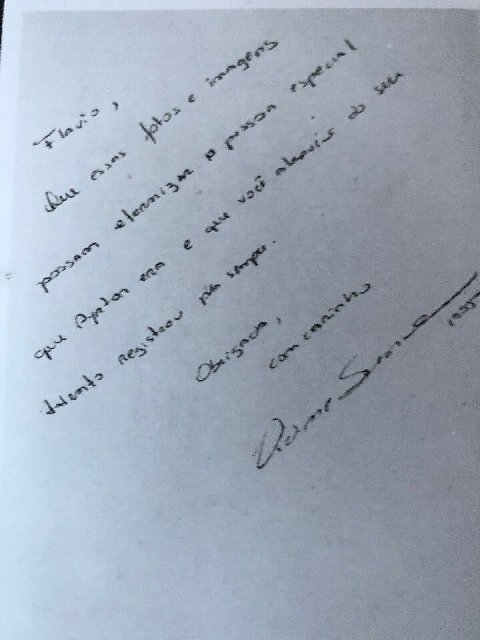 Flavio,
Que essas fotos e imagens
possam eternizar a pessoa especial
que Ayrton era e que você através do seu
talento registrou p/a sempre.
Obrigada,
com carinho
Viviane Senna